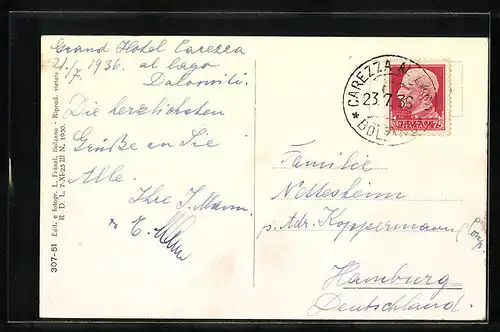 Grand Hotel Carezza
21./7. 1936. al lago
Dolomiti.
Die herzlichsten
Grüße an Sie
Alle.
Ihre J. Mann.
307-51 Edit. e fotogr. L. Fränzl, Bolzano - Riprod. vietata
R. D. L. 7-XI-25 III N. 1950.
CAREZZA AL
23.7.36
Familie
Nettesheim
p. Adr. Koppermann
Hamburg
Deutschland.